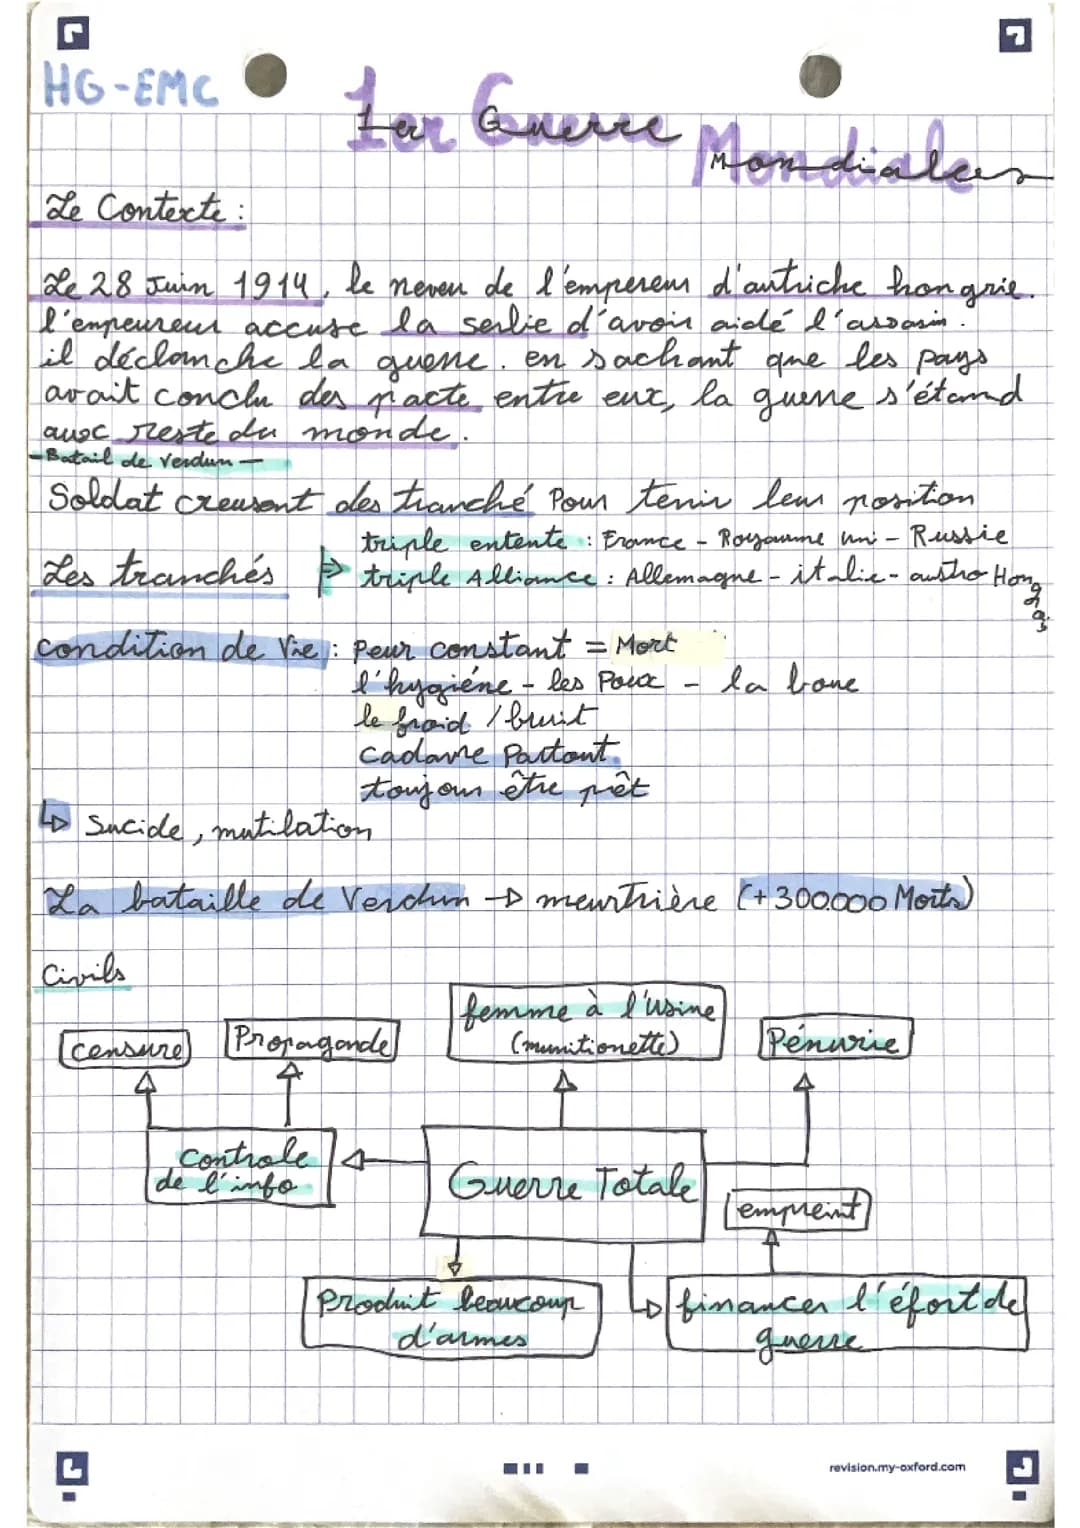 HG-EMC
1er Guerre
Mondiales
Le Contexte :
Le 28 Juin 1914, le neveu de l'empereur d'autriche hongrie.
l'empeureur accuse la serbie d'avoir aidé l'assasin.
il déclanche la guerre. en sachant que les pays
avait conclu des pacte entre eux, la guerre s'étand
auec reste du monde.
-Batail de Verdun-
Soldat creusent des tranché Pour tenir leur position
triple entente : France - Royaume uni - Russie
Les tranchés
triple Alliance : Allemagne - italie - austro Hong
condition de Vie : Peur constant = Mort
l'hygiéne - les Poux - la boue
le froid / bruit
Cadavre Partout.
toujour être prêt
↳ Sucide, mutilation
La bataille de Verdun → meurtrière (+300.000 Morts)
Civils
femme à l'usine
(munitionette)
censure
Propagande
Pénurie
controle
de l'info
Guerre Totale
empreint
Produit beaucoup
d'armes
financer l'éfort de
guerre
revision.my-oxford.com